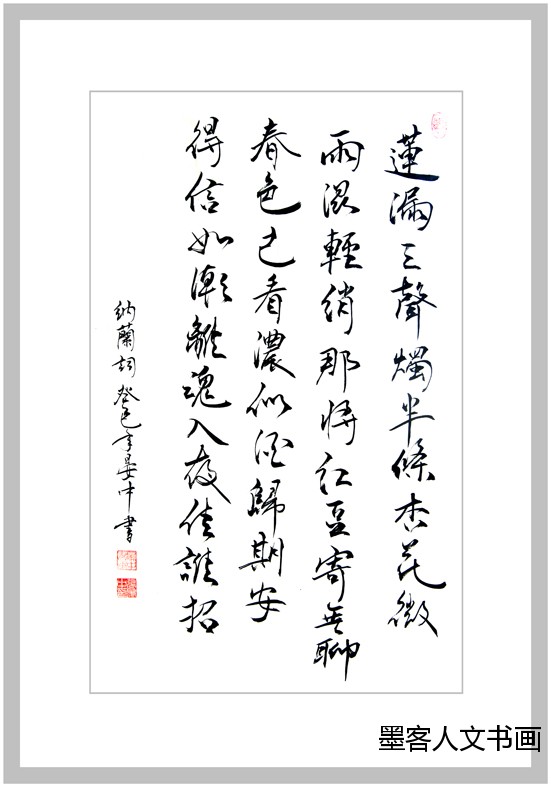 蓮漏三聲燭半條杏花微
雨濕輕綃那將紅豆寄無聊
春色已看濃似酒歸期安
得信如潮離魂入夜倩誰招
納蘭詞 癸巳年晏中書
墨客人文书画